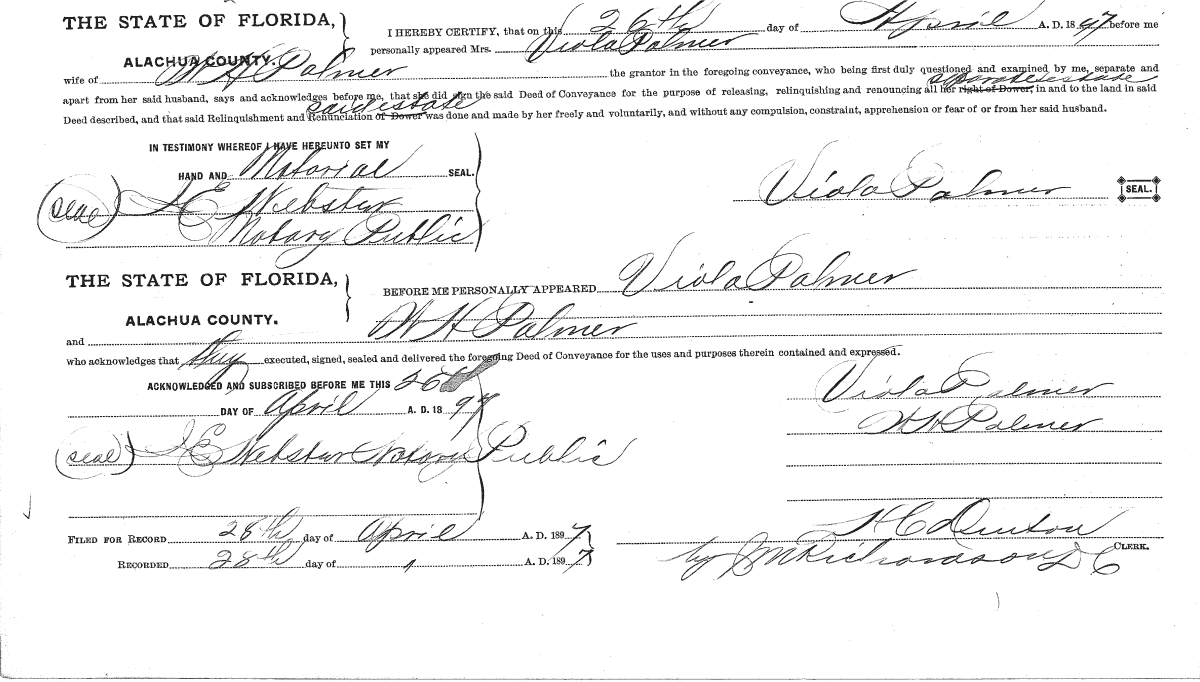 THE STATE OF FLORIDA,
ALACHUA COUNTY.
I HEREBY CERTIFY, that on this 26th day of April A. D. 1897 before me
personally appeared Mrs. Viola Palmer
wife of W H Palmer the grantor in the foregoing conveyance, who being first duly questioned and examined by me, separate and
separate estate
apart from her said husband, says and acknowledges before me, that she did sign the said Deed of Conveyance for the purpose of releasing, relinquishing and renouncing all her right of Dower, in and to the land in said
said estate
Deed described, and that said Relinquishment and Renunciation of Dower was done and made by her freely and voluntarily, and without any compulsion, constraint, apprehension or fear of or from her said husband.
IN TESTIMONY WHEREOF I HAVE HEREUNTO SET MY
HAND AND Notorial SEAL.
Viola Palmer SEAL.
(seal) E Webster
Notary Public
THE STATE OF FLORIDA,
ALACHUA COUNTY.
BEFORE ME PERSONALLY APPEARED Viola Palmer
and W H Palmer
who acknowledges that they executed, signed, sealed and delivered the foregoing Deed of Conveyance for the uses and purposes therein contained and expressed.
ACKNOWLEDGED AND SUBSCRIBED BEFORE ME THIS 26th
DAY OF April A. D. 1897
Viola Palmer
W H Palmer
(seal) E Webster Notary Public
FILED FOR RECORD 28th day of April A. D. 1897
RECORDED 28th day of " A. D. 1897
H C Denton
CLERK.
by J M Richardson D C